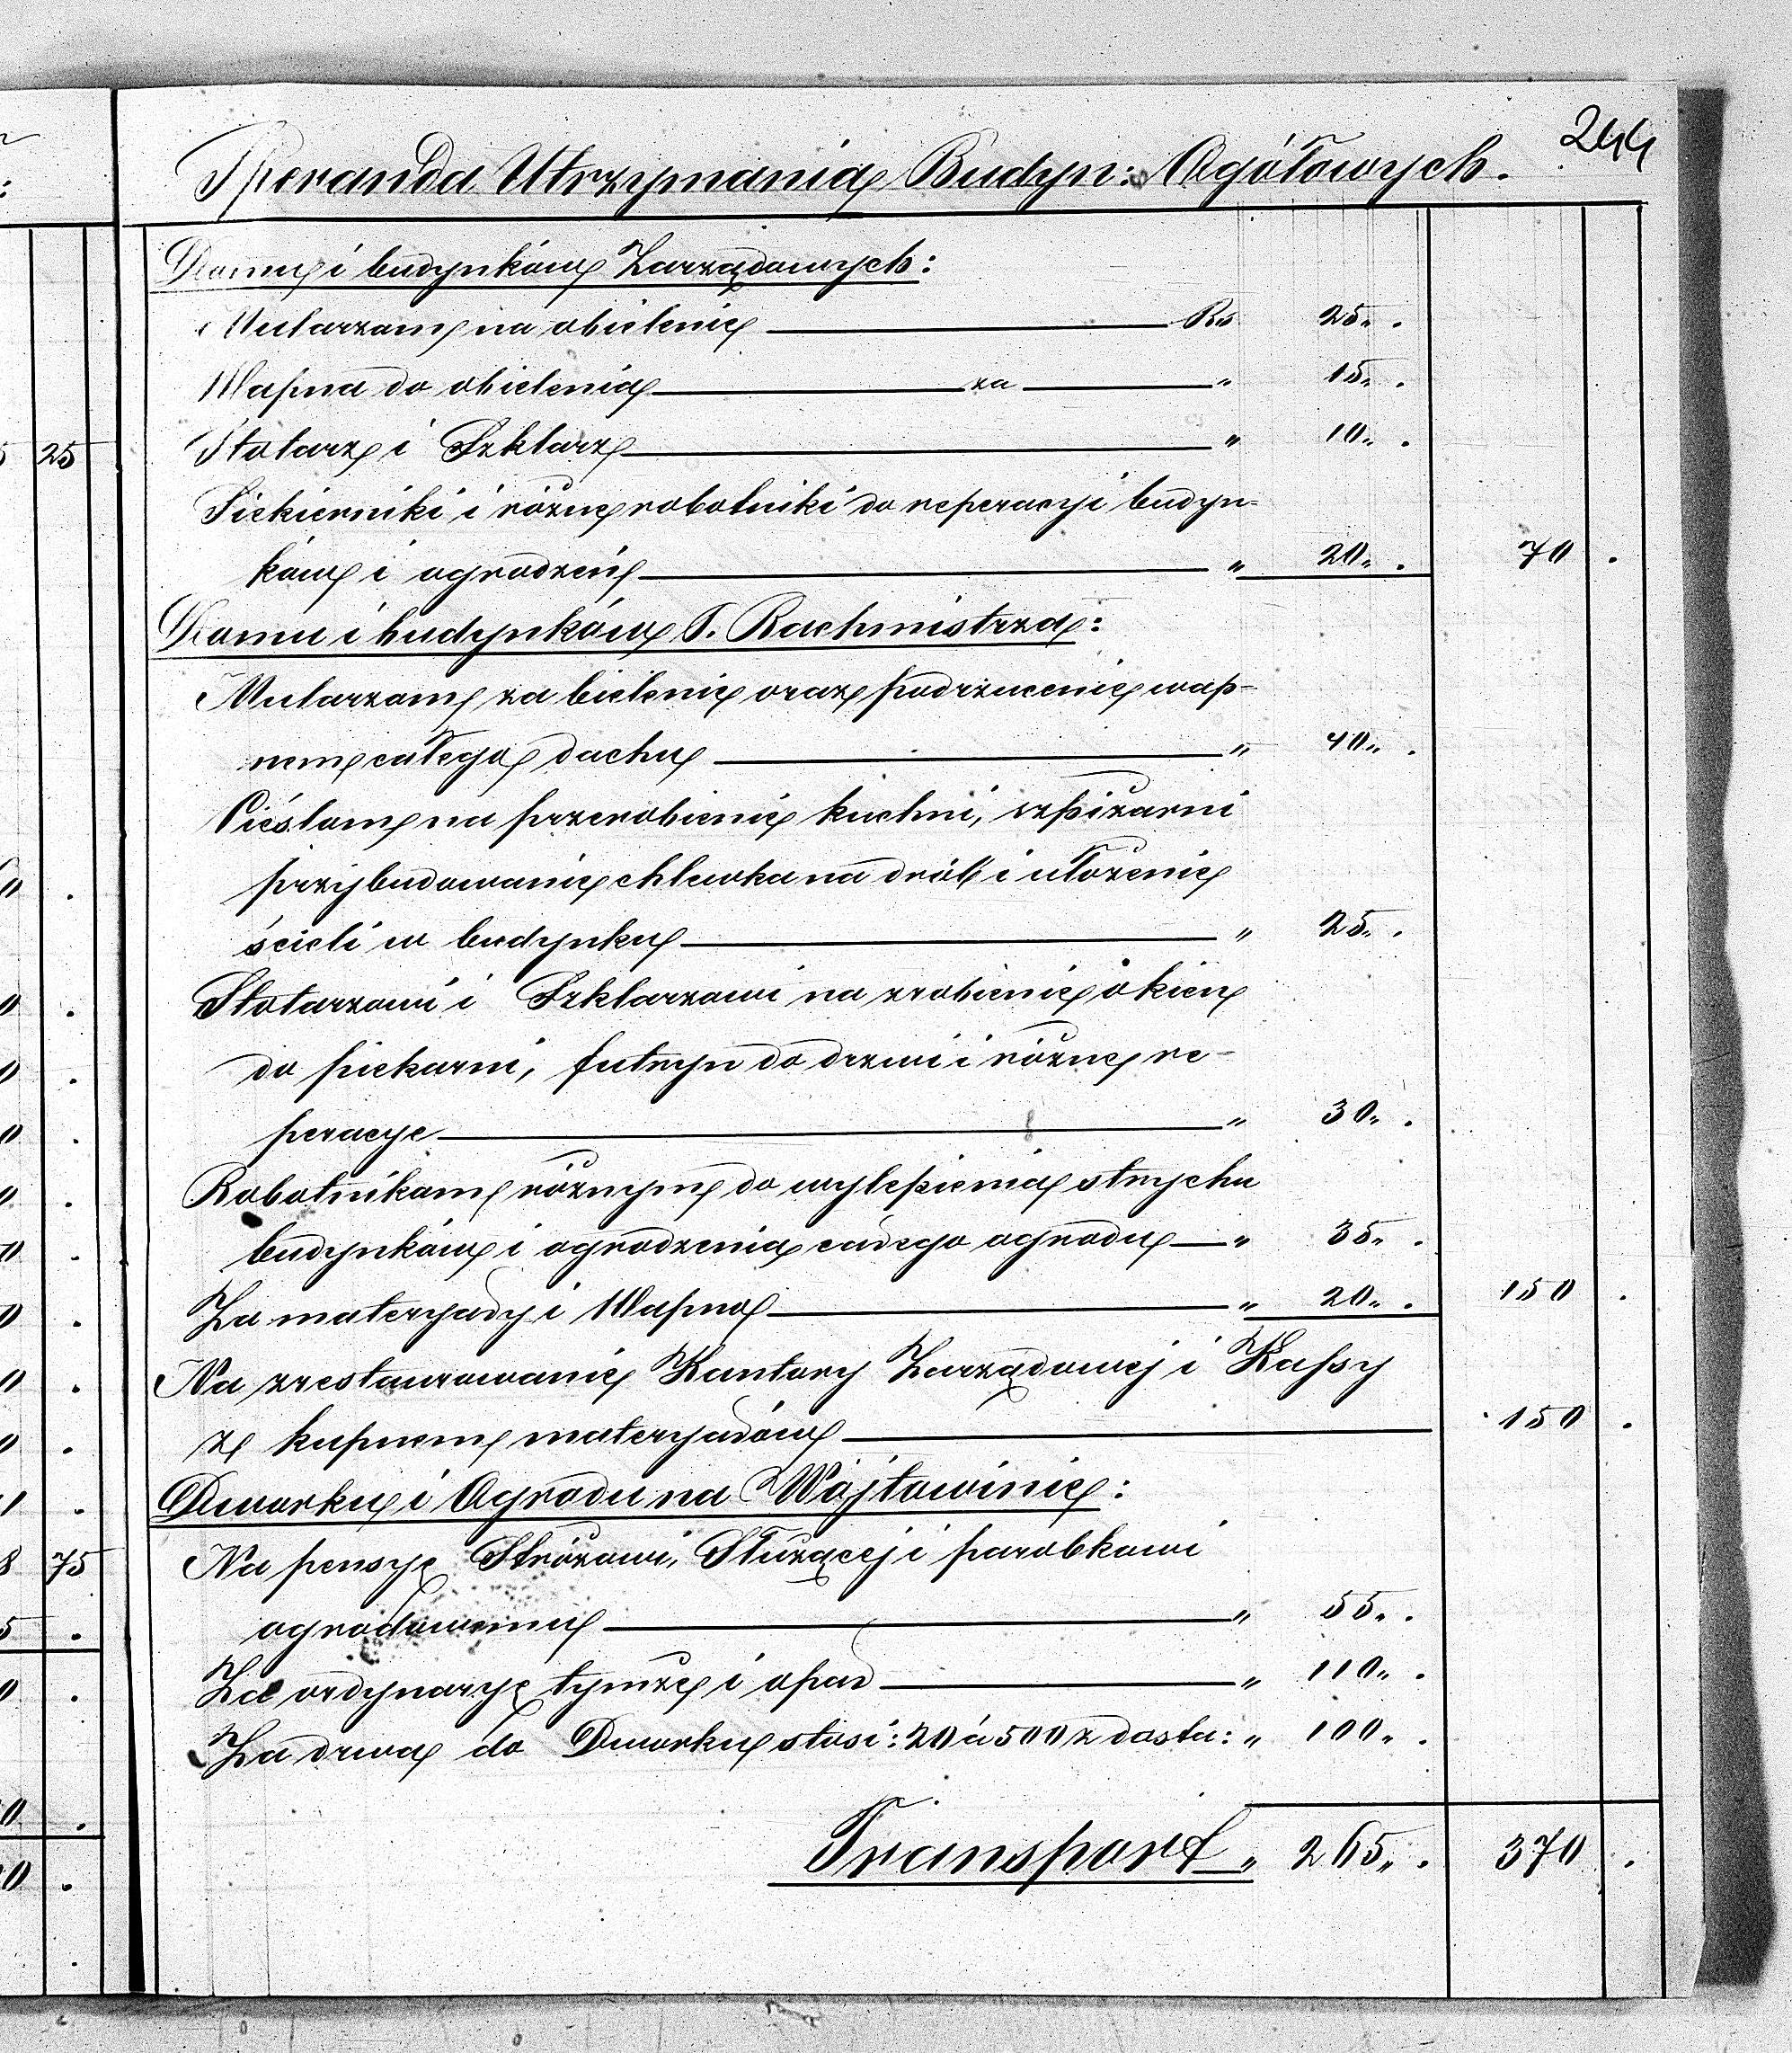 244
Speranda Utrzymania Budyn: Ogółowych.
Domu i budynków Zarządowych:
Mularzom na obielenie Rs 25 " .
Wapna do obielenia za " 15 " .
Stolarz i Szklarz " 10 " .
Siekierniki i różne robotniki do reperacyi budyn-
ków i ogrodzeń " 20 " . 70 .
Domu i budynków P. Rachmistrza:
Mularzom za bielenie oraz podrzucenie wap-
nem całego dachu " 40 " .
Cieślom na przerobienie kuchni, szpiżarni
przybudowanie chlewka na drób i ułożenie
ścieli w budynku " 25 " .
Stolarzowi i Szklarzowi na zrobienie okien
do piekarni, futryn do drzwi i różne re-
peracye " 30 " .
Robotnikom różnym do wylepienia strychu
budynków i ogrodzenia całego ogrodu " 35 " .
Za materyały i Wapno " 20 " . 150 .
Na zrestaurowanie Kantory Zarządowej i Kassy
z kupnem materyałów 150 .
Dworku i Ogrodu na Wójtowinie:
Na pensyę Stróżowi, Służącej i parobkowi
ogrodowemu " 55 " .
Za ordynaryę tymże i opał " 110 " .
Za drwa do Dworku stosi: 20 à 500 z dosta: " 100 " .
Transport " 265 " . 370 .
25
75